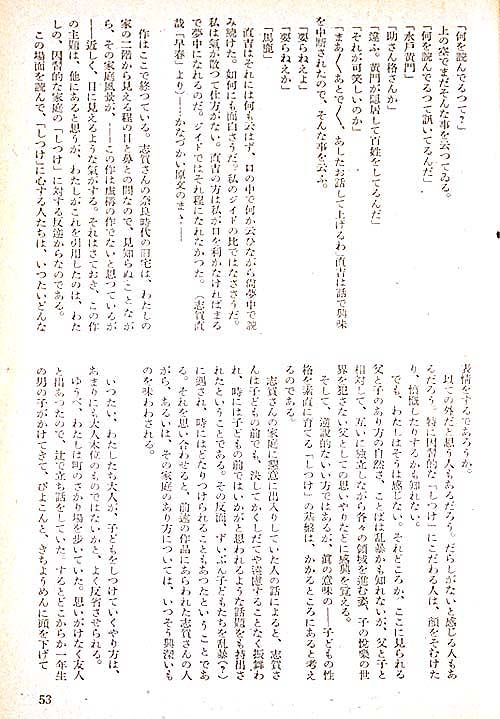 「何を読んでるつて？」
上の空でまだそんな事を云つてゐる。
「何を読んでるつて訊いてるんだ」
「水戸黄門」
「助さん格さんか」
「違ふ。黄門が隠居して百姓をしてるんだ」
「それが可笑しいのか」
「まあ〱、あとで〱、あしたお話して上げるわ」直吉は話で興味
を中断されたので、そんな事を云ふ。
「要らねえよ」
「要らねえか」
「馬鹿」
直吉はそれには何も云はず、口の中で何か云ひながら尚夢中で読
み続けた。如何にも面白さうだ。私のジイドの比ではなささうだ。
私は気が散つて仕方がない。直吉の方は私が口を利かなければまる
で夢中になれるのだ。ジイドではそれ程になれなかつた。（志賀直
哉「早春」より）――かなづかい原文のまま――
作はここで終つている。志賀さんの奈良時代の旧宅は、わたしの
家の二階から見える程の目と鼻との間なので、見知らぬことなが
ら、その家庭風景が、――この作は虚構の作でないと思つているが
――近しく、目に見えるような気がする。それはさておき、この作
の主題は、他にあると思うが、わたしがこれを引用したのは、わた
しの、因習的な家庭の「しつけ」に対する反逆からなのである。
この場面を読んで、「しつけ」に心する人たちは、いつたいどんな
表情をするであろうか。
以ての外だと思う人もあるだろう。だらしがないと感じる人もあ
るだろう。特に因習的な「しつけ」にこだわる人は、顔をそむけた
り、憤慨したりするかも知れない。
でも、わたしはそうは感じない。それどころか、ここに見られる
父と子のあり方の自然さ、ことばは乱暴かも知れないが、父と子と
相対して、互いに独立しながら各々の領域を進む姿、子の悦楽の世
界を犯さない父としての思いやりなどに感興を覚える。
そして、逆説的ないい方ではあるが、眞の意味の――子どもの性
格を素直に育てる「しつけ」の基盤は、かかるところにあると考え
るのである。
志賀さんの家庭に懇意に出入りしていた人の話によると、志賀さ
んは子どもの前でも、決してかくしだてや遠慮することなく振舞わ
れ、時には子どもの前ではいかがと思われるような話題をも持出さ
れたということである。その反面、ずいぶん子どもたちを乱暴(?)
に遇され、時にはどなりつけられることもあつたということであ
る。それを思い合わせると、前述の作品にあらわれた志賀さんの人
がら、あるいは、その家庭のあり方については、いつそう興深いも
のを味わわされる。
いつたい、わたしたち大人が、子どもをしつけていくやり方は、
あまりにも大人本位のものではないかと、よく反省させられる。
ゆうべ、わたしは町のさかり場を歩いていた。思いがけなく友人
と出あつたので、辻で立ち話をしていた。するとどこからか一年生
の男の子がかけてきて、ぴよこんと、きちようめんに頭を下げて
53